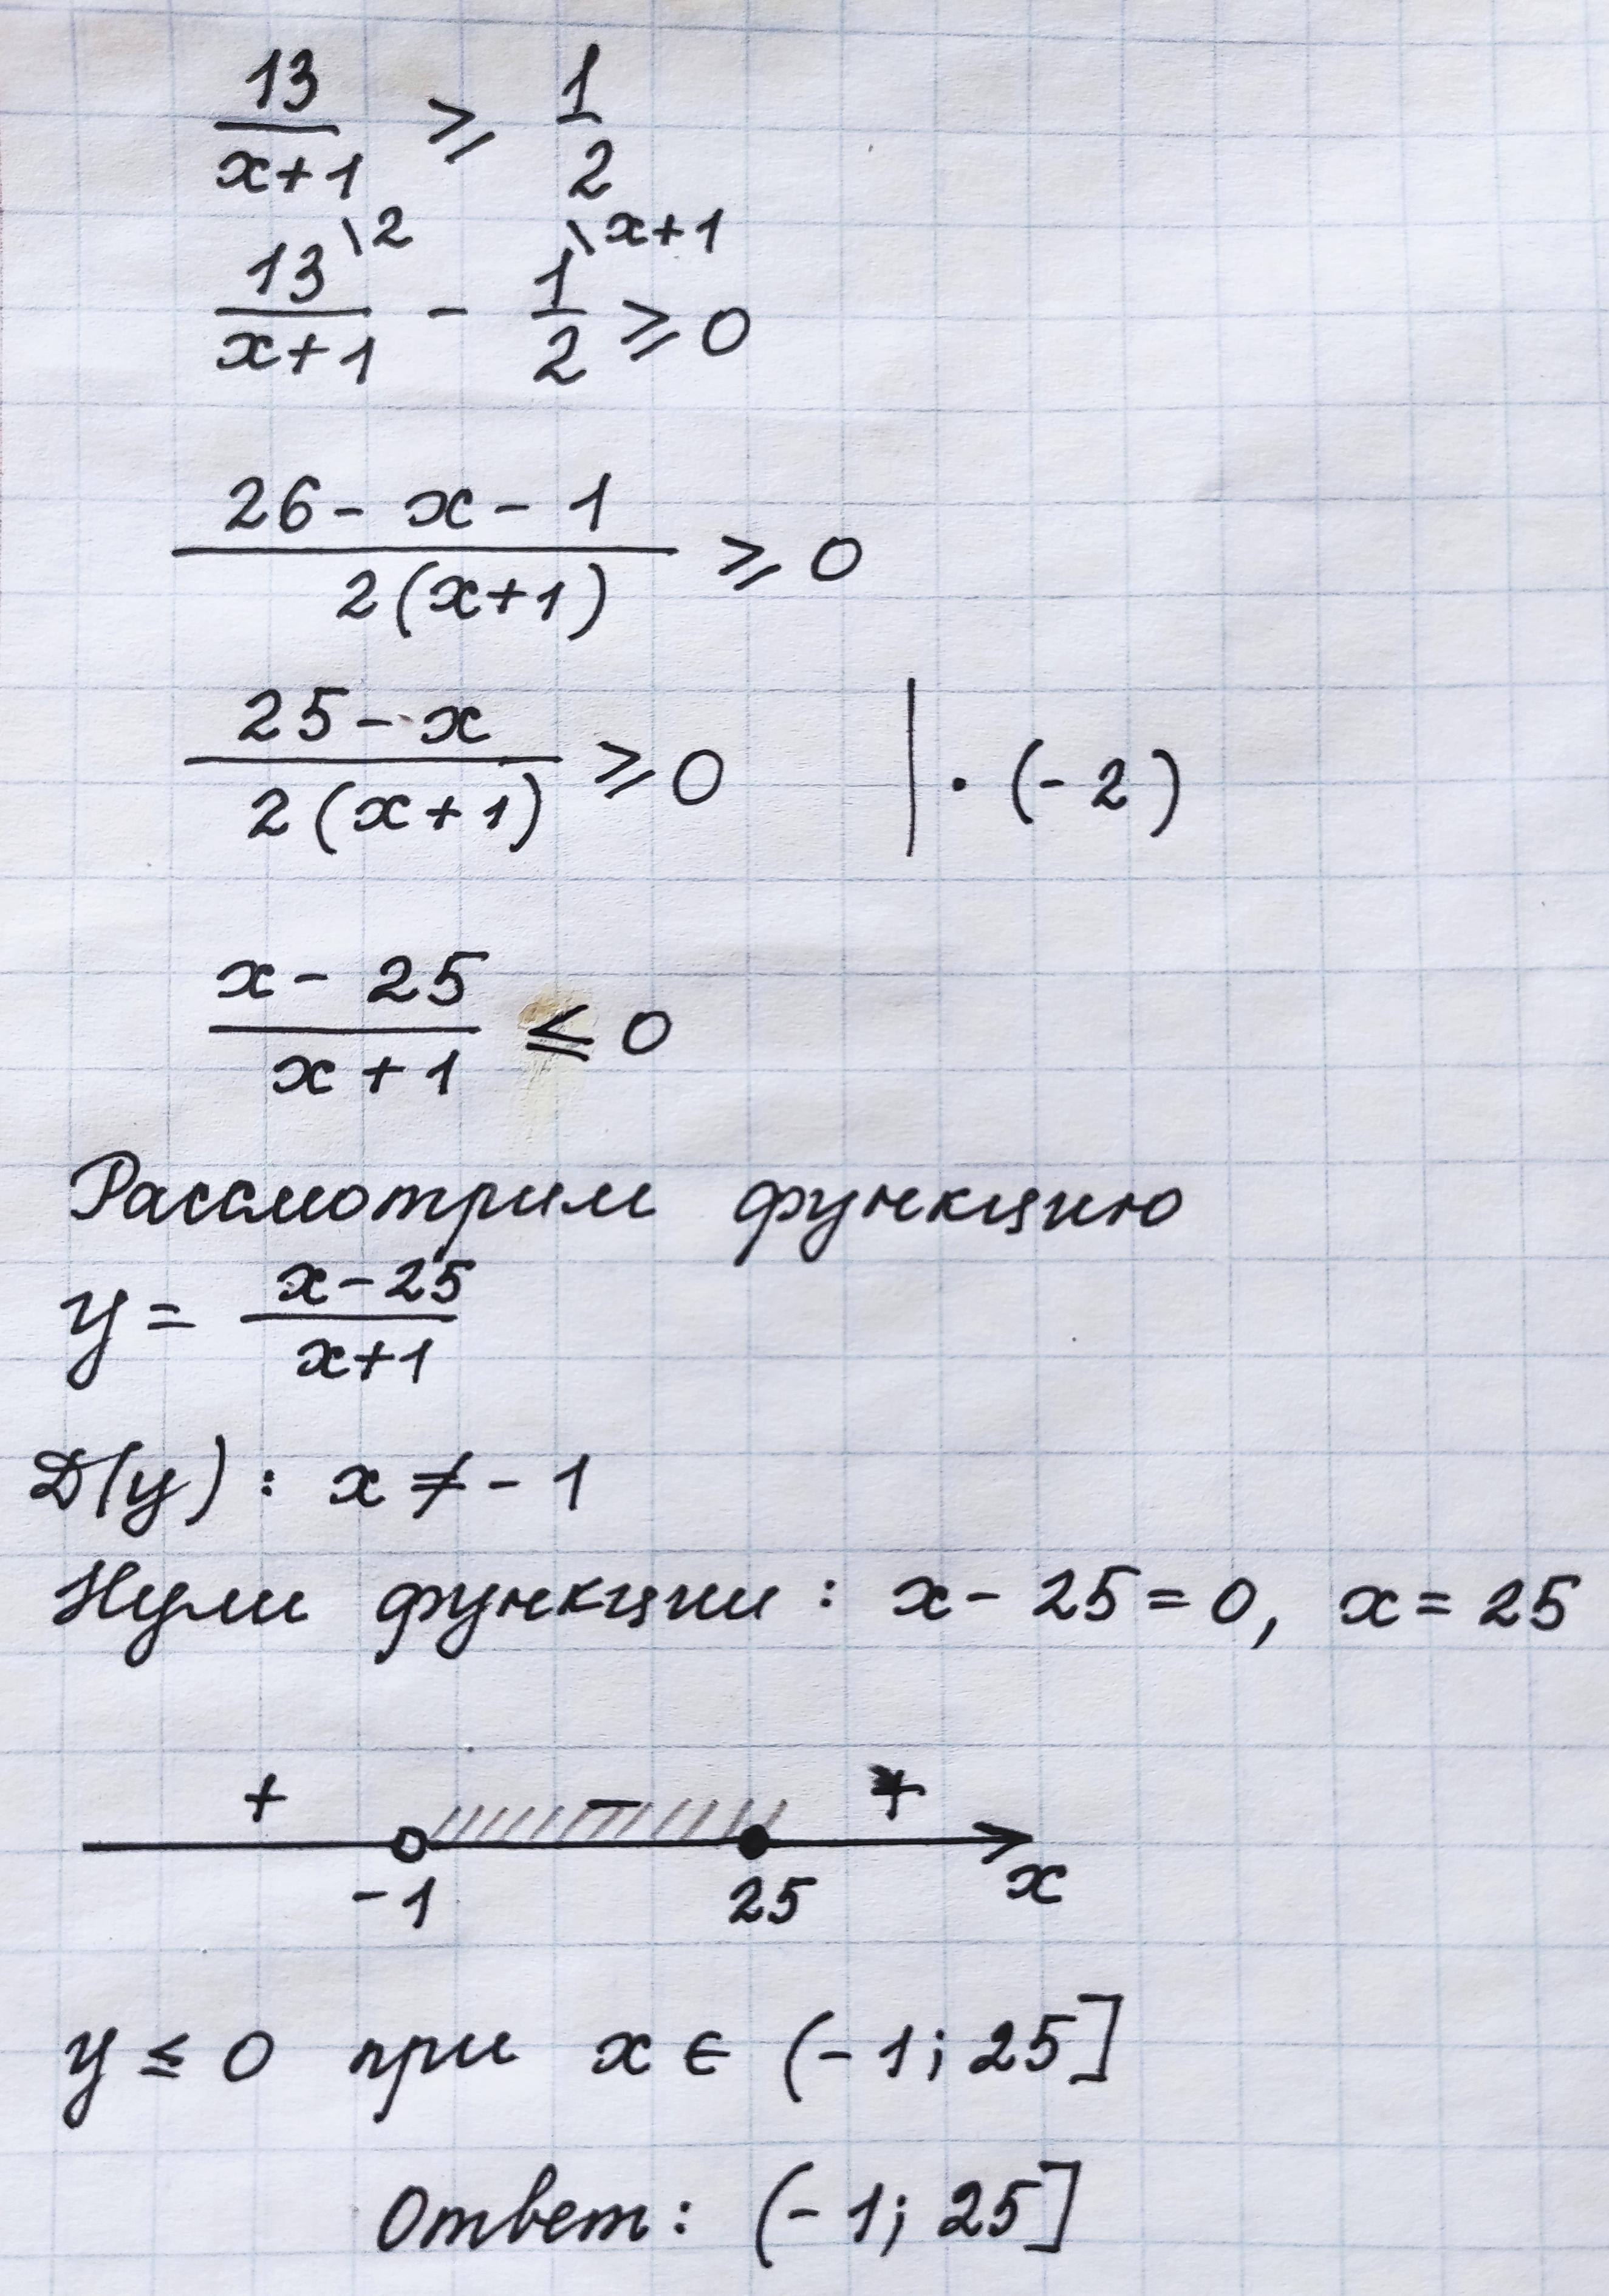 13/(x+1) ⩾ 1/2
13\2/(x+1) - 1\x+1/2 ⩾ 0
(26 - x - 1)/(2(x+1)) ⩾ 0
(25 - x)/(2(x+1)) ⩾ 0 | · (-2)
(x - 25)/(x + 1) ≤ 0
Рассмотрим функцию
y = (x - 25)/(x+1)
D(y): x ≠ -1
Нули функции: x - 25 = 0, x = 25
+ − +
-1 25 x
y ≤ 0 при x ∈ (-1; 25]
Ответ: (-1; 25]